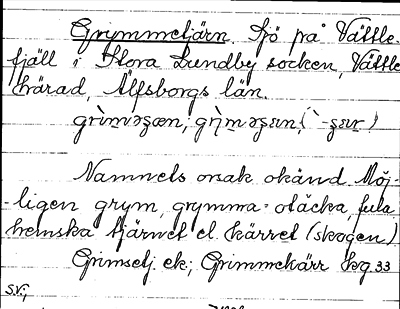 Grymmetjärn. Sjö på Vättle-
fjäll i Stora Lundby socken, Vättle
härad, Älfsborgs län.
Namnets orsak okänd. Möj-
ligen grym, grymma = otäcka, fula
hemska tjärnet el. kärret (skogen)
Grimsetj. ek; Grimmekärr kg 33
S.V.j